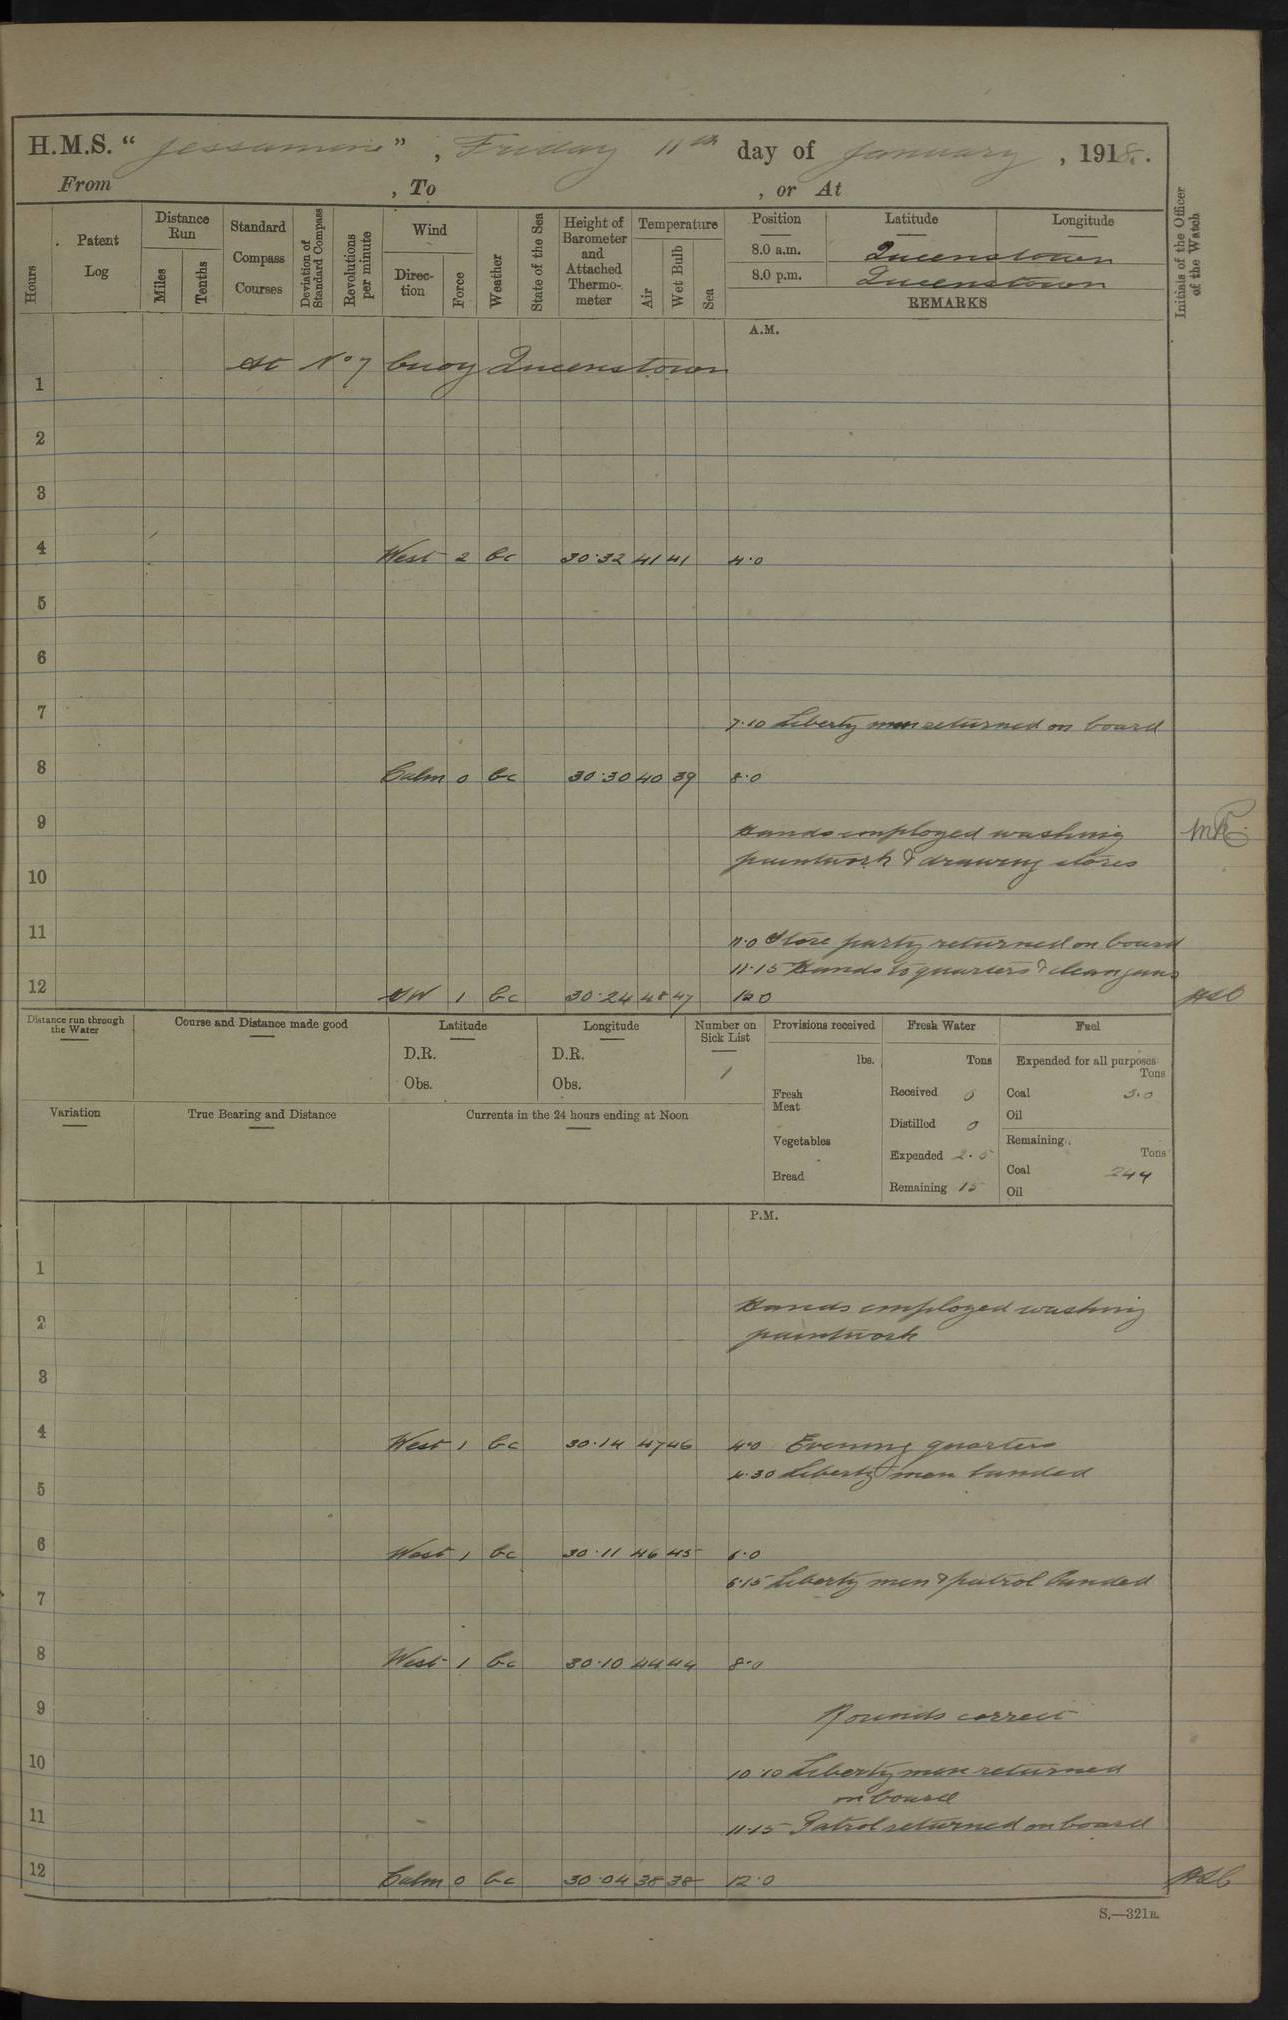 H.M.S. “ Jessamine ” , Friday 11th day of January , 1918.
From , To , or At
Hours
Patent Log
Distance Run
Miles
Tenths
Standard Compass Courses
Deviation of Standard Compass
Revolutions per minute
Wind
Direction
Force
Weather
State of the Sea
Height of Barometer and Attached Thermometer
Temperature
Air
Wet Bulb
Sea
Position Latitude Longitude
8.0 a.m. Queenstown
8.0 p.m. Queenstown
REMARKS
Initials of the Officer of the Watch
A.M.
At No 7 buoy Queenstown
1
2
3
4 West 2 bc 30.32 41 41 4.0
5
6
7
7.10 Liberty men returned on board
8 Calm 0 bc 30.30 40 39 8.0
9 Hands employed washing
paintwork & drawing stores
10
11
11.0 Store party returned on board
11.15 Hands to quarters & clean guns
12 SW 1 bc 30.24 48 47 12.0
Distance run through the Water
Course and Distance made good
Latitude
D.R.
Obs.
Longitude
D.R.
Obs.
Number on Sick List
1
Provisions received
lbs.
Fresh Meat
Vegetables
Bread
Fresh Water
Tons
Received 0
Distilled 0
Expended 2.5
Remaining 15
Fuel
Expended for all purposes
Tons
Coal 5.0
Oil
Remaining
Tons
Coal 244
Oil
Variation
True Bearing and Distance
Currents in the 24 hours ending at Noon
P.M.
1
2 Hands employed washing
paintwork
3
4 West 1 bc 30.14 47 46 4.0 Evening quarters
4.30 Liberty men landed
5
6 West 1 bc 30.11 46 45 6.0
6.15 Liberty men & patrol landed
7
8 West 1 bc 30.10 44 44 8.0
9 Rounds correct
10
10.10 Liberty men returned
on board
11
11.15 Patrol returned on board
12 Calm 0 bc 30.04 38 38 12.0
S.—321B.